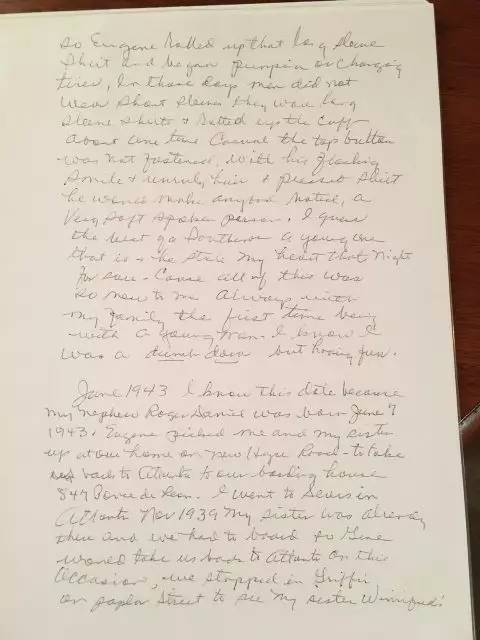 so Eugene Rolled up that long sleeve
Shirt and began pumpin or changing
tires, In those days men did not
wear short sleeves they wore long
sleeve shirts & Rolled up the cuff
about one turn Casual the top button
was not fastened. With his flashing
smile & unruly hair & pressed shirt
he would make anybody notice, a
Very soft spoken person. I guess
the best ga Southern a young one
that is & he stole my heart that night
for sure - Cause all of this was
so new to me Always with
my family the first time being
with a young man. I know I
was a dumb dora but having fun.
June 1943 I know this date because
my nephew Roger Daniel was born June 7
1943. Eugene picked me and my sister
up at our home on New Hope Road - to take
back to Atlanta to our boarding house
847 Ponce de Leon. I went to Sears in
Atlanta Nov 1939 My sister was already
there and we had to board so Gene
would take us back to Atlanta On this
Occasion, we stopped in Griffin
on poplar Street to see my sister Winnifred's